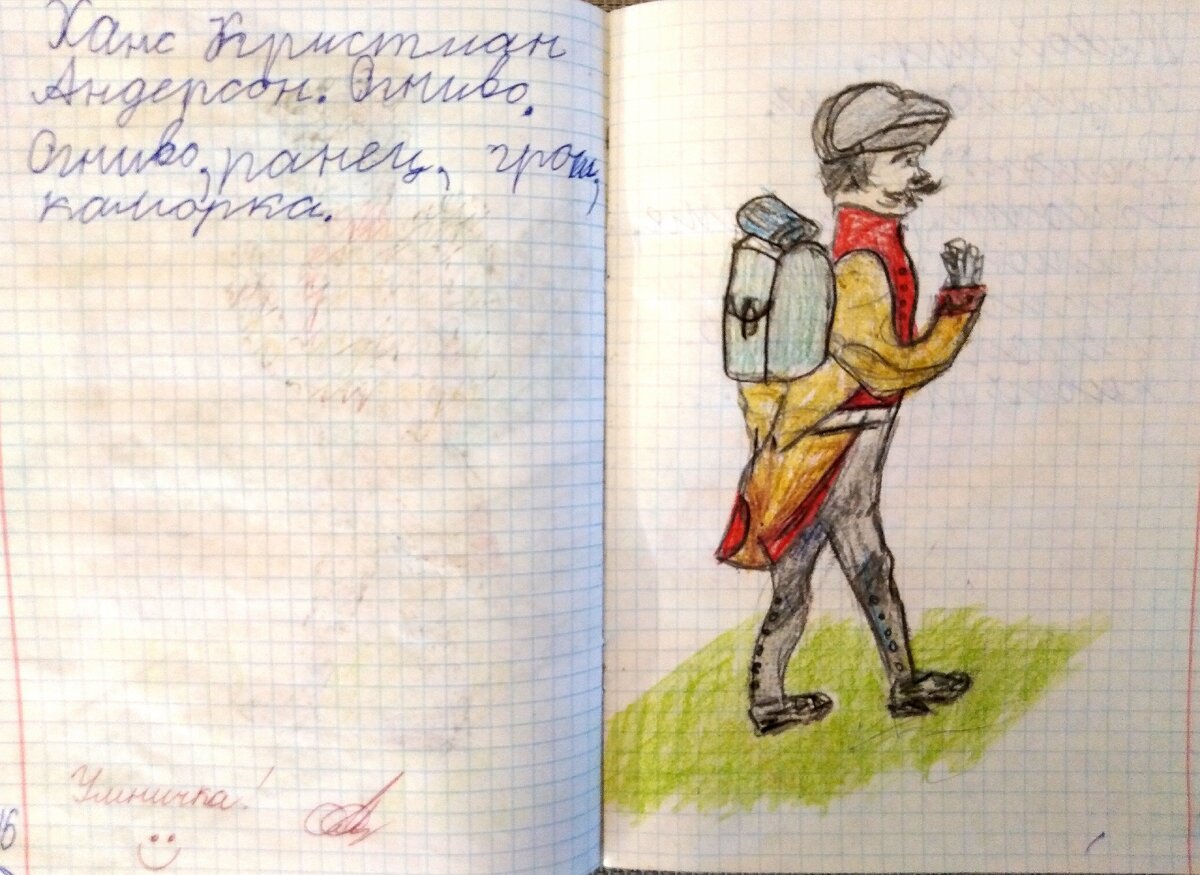 Ханс Кристиан
Андерсон. Огниво.
Огниво, ранец, грош,
каморка.
Умничка!
16